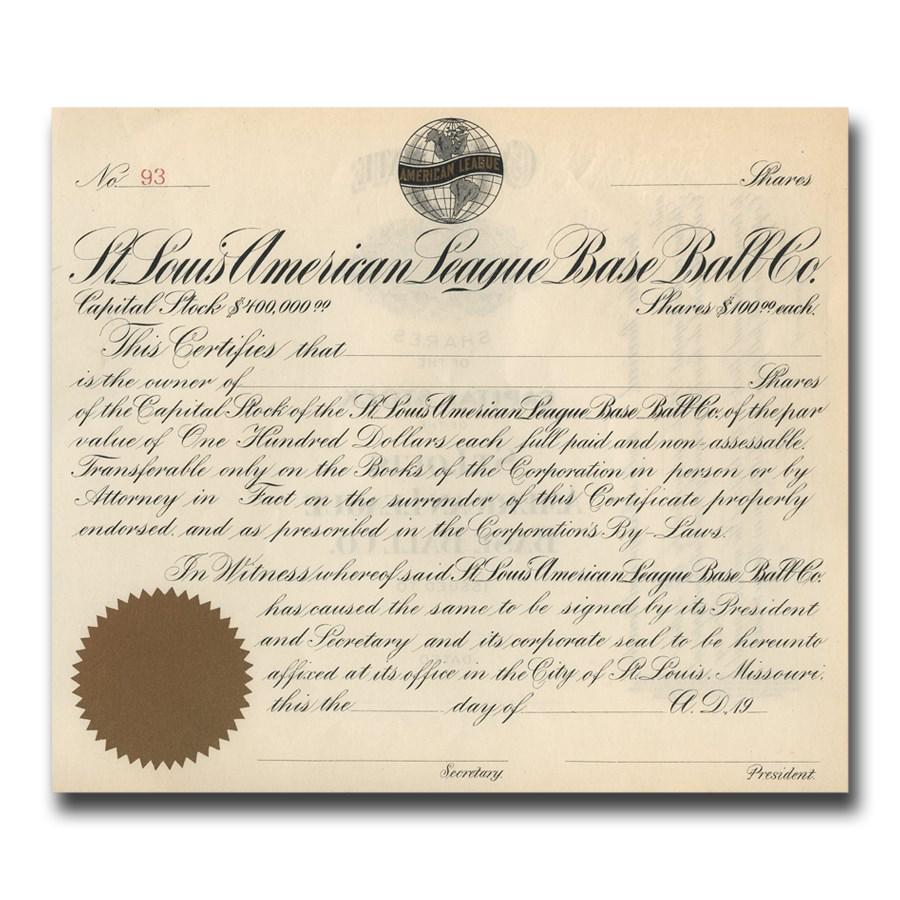 No. 93
AMERICAN LEAGUE
Shares
St. Louis American League Base Ball Co.
Capital Stock $400,000.00 Shares $100.00 each.
This Certifies that
is the owner of Shares
of the Capital Stock of the St. Louis American League Base Ball Co. of the par
value of One Hundred Dollars each full paid and non-assessable.
Transferable only on the Books of the Corporation in person or by
Attorney in Fact on the surrender of this Certificate properly
endorsed. and as prescribed in the Corporation's By-Laws.
In Witness whereof said St. Louis American League Base Ball Co.
has caused the same to be signed by its President
and Secretary and its corporate seal to be hereunto
affixed at its office in the City of St. Louis. Missouri.
this the day of A.D. 19
Secretary. President.